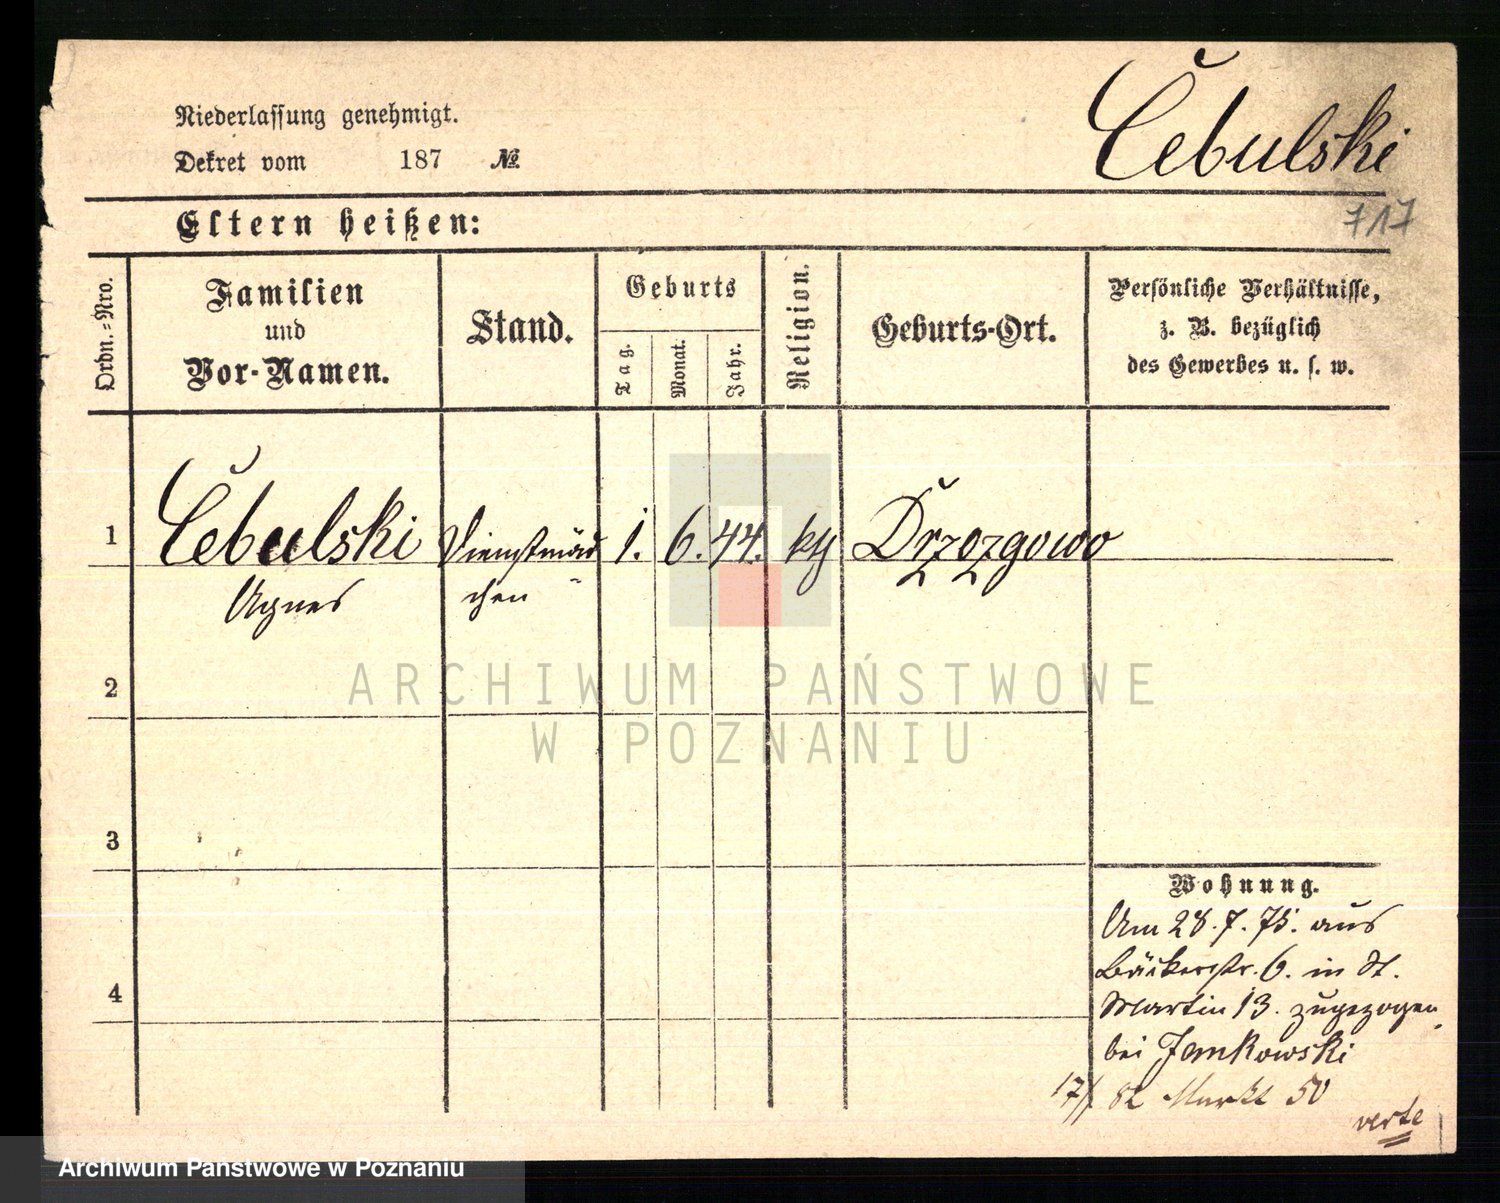 Niederlassung genehmigt.
Dekret vom 187 №
Čebulski
717
Eltern heißen:
Ordn.-Nro.
Familien
und
Vor-Namen.
Stand.
Geburts
Tag.
Monat.
Jahr.
Religion.
Geburts-Ort.
Persönliche Verhältnisse,
z. B. bezüglich
des Gewerbes u. s. w.
1 Čebulski Dienstmäd 1. 6. 44. kth Drzozgowo
Agnes chen
2
3
4
Wohnung.
Am 28. 7. 75. aus
Bäckerstr. 6. in St.
Martin 13. zugezogen
bei Jankowski
17/ 82 Markt 50
verte
ARCHIWUM PAŃSTWOWE
W POZNANIU
Archiwum Państwowe w Poznaniu